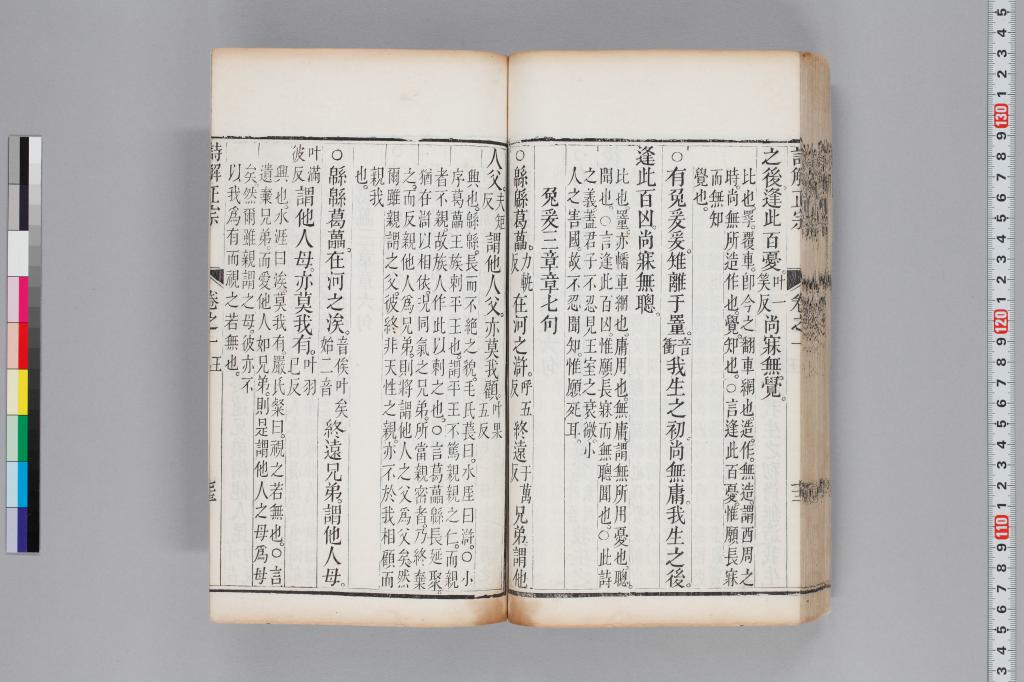 之後逢此百憂叶一笑反尚寐無覺
比也罿覆車即今之翻車網也造作無造謂西周之
時尚無所造作也覺知也○言逢此百憂惟願長寐
而無知
覺也
○有兔爰爰雉離于罿音衝我生之初尚無庸我生之後
逢此百凶尚寐無聰
比也罿亦幡車網也庸用也無庸謂無所用憂也聰
聞也○言逢此百凶惟願長寐而無聰聞也○此詩
之義蓋君子不忍見王室之衰微小
人之害國故不忍聞知惟願死耳
兔爰三章章七句
○緜緜葛藟力軌反在河之滸呼五反終遠于萬反兄弟謂他
人父夫矩反謂他人父亦莫我顧叶果五反
興也緜緜長而不絕之貌毛氏萇曰水厓曰滸○小
序葛藟王族刺平王也謂平王不篤親親之仁而親
者不親故族人作此以刺之也○言葛藟緜長延聚
猶在滸以相依況同氣之兄弟所當親密者乃終棄
之而反親他人爲兄弟則將謂他人之父爲父矣然
爾雖親謂之父彼終非天性之親亦不於我相顧而
親我
也
○緜緜葛藟在河之涘音俟叶矣始二音終遠兄弟謂他人母
叶滿彼反謂他人母亦莫我有叶羽已反
興也水涯曰涘莫我有嚴氏粲曰視之若無也○言
遺棄兄弟而愛他人如兄弟則是謂他人之母爲母
矣然爾雖親謂之母彼亦不
以我爲有而視之若無也
詩解正宗
卷之一